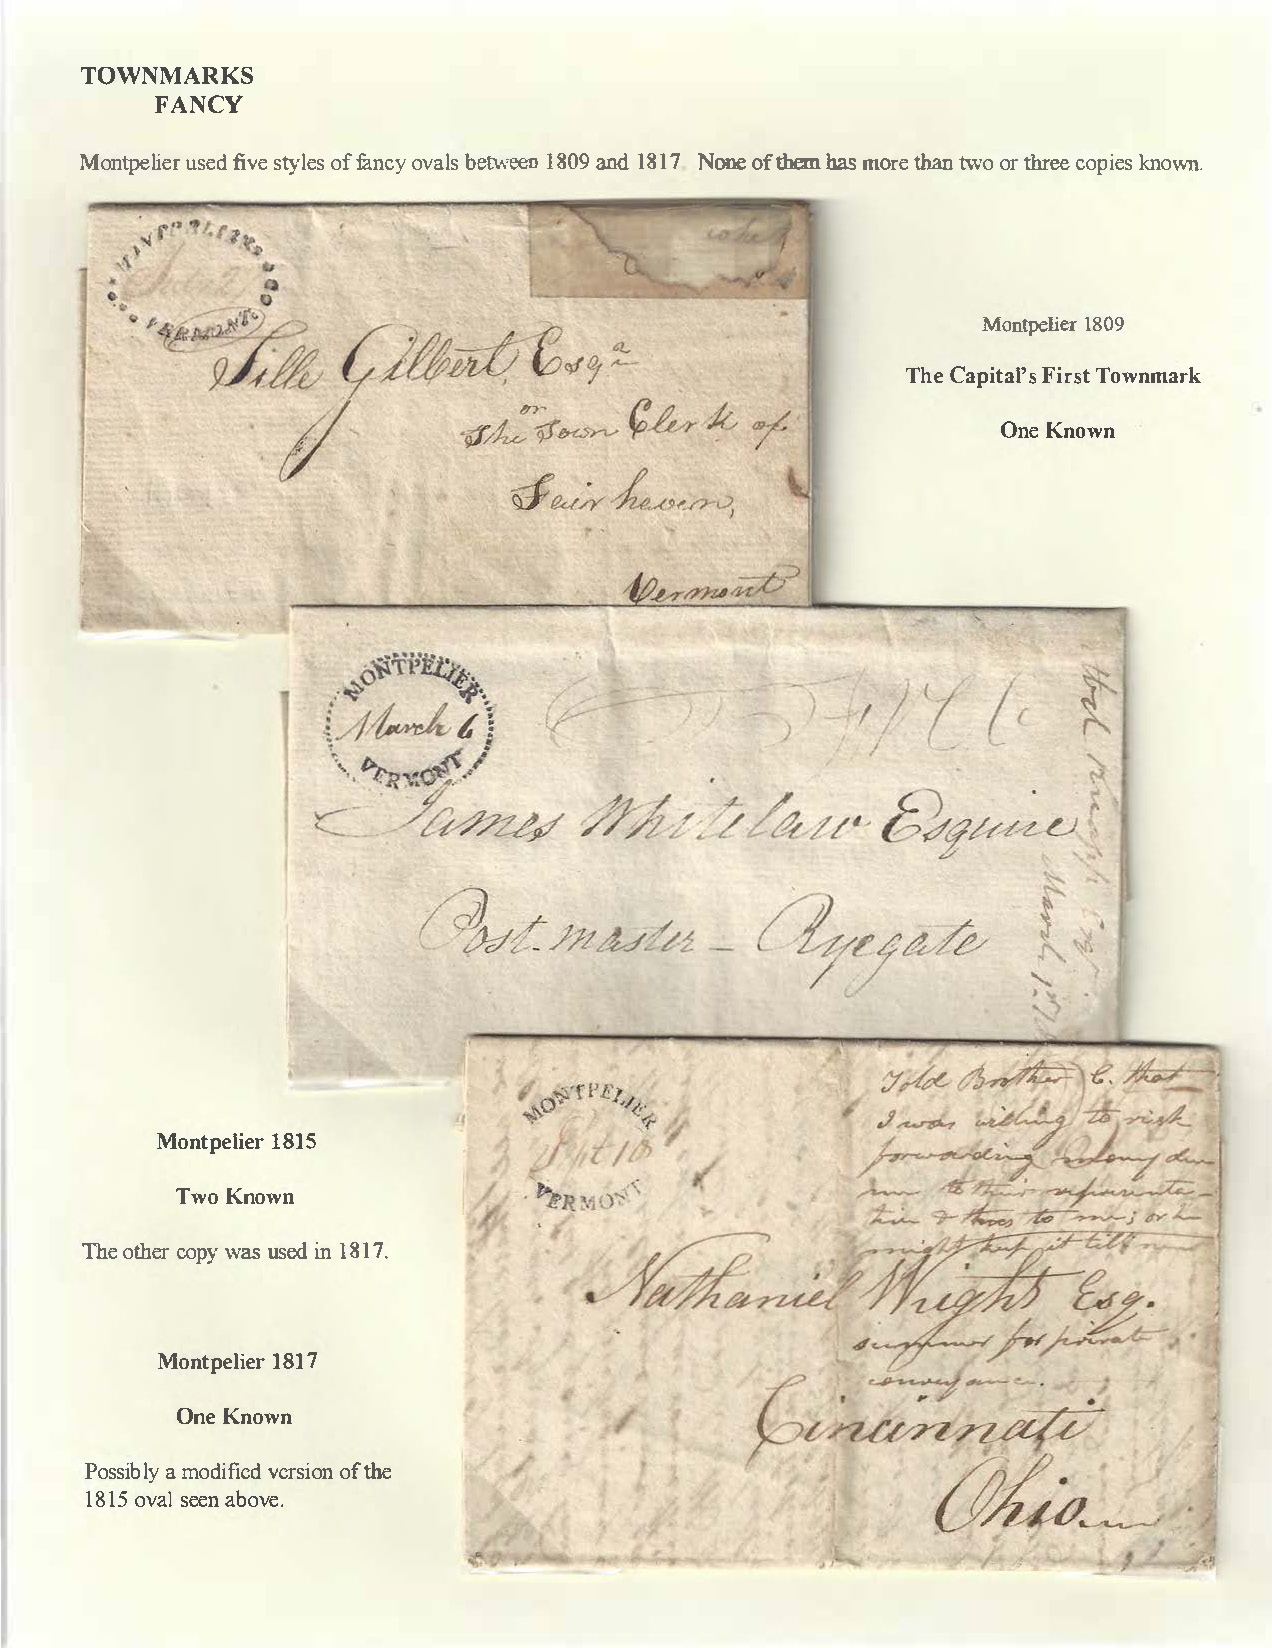 TOWNMARKS
FANCY
Montpelier used five styles of fancy ovals between 1809 and 1817. None of them has more than two or three copies known.
MONTPELIER
VERMONT
Tille Gilbert, Esqr
or
The Town Clerk of
Fairhaven,
Vermont
Montpelier 1809
The Capital's First Townmark
One Known
MONTPELIER
March 6
VERMONT
James Whitelaw Esquire
Post-master – Ryegate
March 1
Montpelier 1815
Two Known
The other copy was used in 1817.
Montpelier 1817
One Known
Possibly a modified version of the
1815 oval seen above.
MONTPELIER
Spt 10
VERMONT
Told Brother C. that
I was willing to risk
forwarding money
to their
& theirs to me; or he
might keep it till
Nathaniel Wright Esq.
summer for private
conveyance.
Cincinnati
Ohio